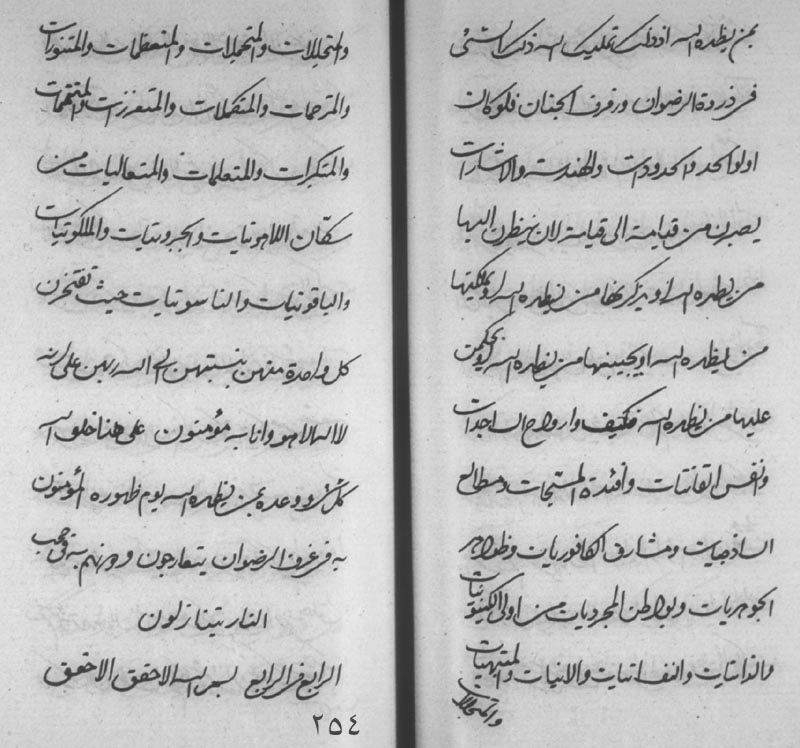 بمن یظهره الله اذ ذلک تملیک الله ذلک الشئ
فی ذروة الرضوان ورفرف الجنان فلو کان
اولو الحد والحدودات والهندسة والاشارات
یصبرن من قیامة الی قیامة لان ینظرن الیها
من یظهره الله او یذکرنها من یظهره الله او یملکنها
من یظهره الله او یجیبنها من یظهره الله او یحکمن
علیها من یظهره الله فکیف وارواح الساجدات
وانفس القانتات وافئدة المسبحات ومطالع
الساذجیات ومشارق الکافوریات وظواهر
الجوهریات وبواطن المجردیات من اولی الکینونیات
والذاتیات والنفسانیات والانیات والمتبهیات
والمتجللات
والمتجللات والمتجملات والمتعظمات والمتنورات
والمترحمات والمتکملات والمتعززات
والمتکبرات والمتعلمات والمتعالیات من
سکان اللاهوتیات والجبروتیات والملکوتیات
والیاقوتیات والناسوتیات حیث تفتخرن
کل واحدة منهن بنسبتهن الی الله ربهن علی انه
لا اله الا هو وانا به مؤمنون علی هذا خلق الله
کل شئ ووعده بمن یظهره الله یوم ظهوره المؤمنون
به فی غرف الرضوان یتعارجون ودونهم به فی حجب
النار یتنازلون
الرابع فی الرابع بسم الله الاحقق الاحقق
٢٥٤